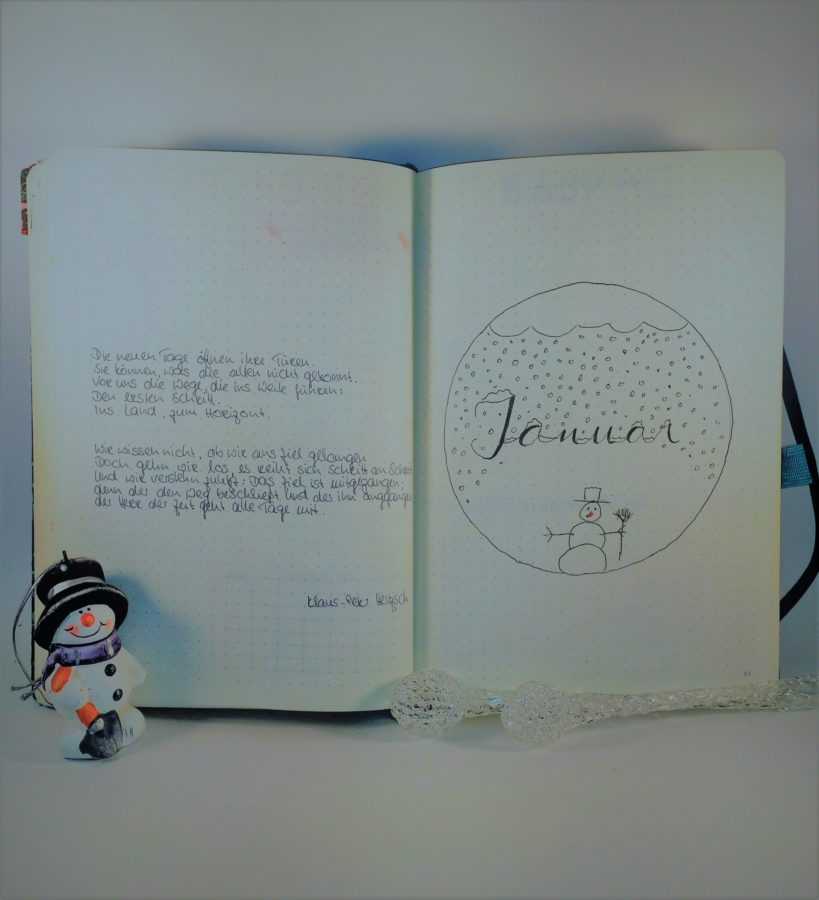 Die neuen Tage öffnen ihre Türen.
Sie können, was die alten nicht gekonnt.
Vor uns die Wege, die ins Weite führen:
Den ersten Schritt.
Ins Land, zum Horizont.
Wir wissen nicht, ob wir ans Ziel gelangen
Doch gehn wir los, es reiht sich Schritt an Schritt
und wir verstehn zuletzt: Das Ziel ist mitgegangen;
denn der den Weg beschließt und der ihn angefangen
der Herr der Zeit geht alle Tage mit.
Klaus-Peter Hertzsch
Januar